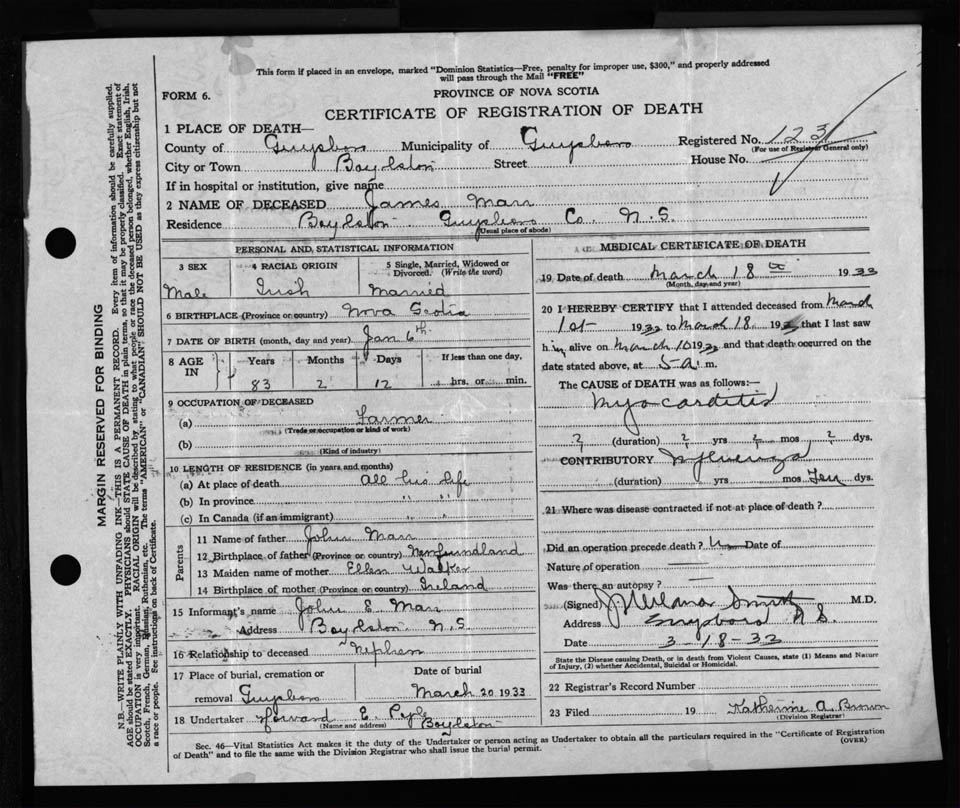 This form if placed in an envelope, marked "Dominion Statistics—Free, penalty for improper use, $300," and properly addressed
will pass through the Mail "FREE"
FORM 6.
PROVINCE OF NOVA SCOTIA
CERTIFICATE OF REGISTRATION OF DEATH
1 PLACE OF DEATH—
County of Guysboro Municipality of Guysboro Registered No. 123
(For use of Registrar General only)
City or Town Boylston Street House No.
If in hospital or institution, give name
2 NAME OF DECEASED James Marr
Residence Boylston Guysboro Co. N.S.
(Usual place of abode)
PERSONAL AND STATISTICAL INFORMATION
3 SEX 4 RACIAL ORIGIN 5 Single, Married, Widowed or
Divorced. (Write the word)
Male Irish Married
6 BIRTHPLACE (Province or country) Nova Scotia
7 DATE OF BIRTH (month, day and year) Jan 6th
8 AGE IN Years Months Days If less than one day,
83 2 12 hrs. or min.
9 OCCUPATION OF DECEASED
(a) Farmer
(Trade or occupation or kind of work)
(b)
(Kind of industry)
10 LENGTH OF RESIDENCE (in years and months)
(a) At place of death All his life
(b) In province " "
(c) In Canada (if an immigrant) " "
Parents
11 Name of father John Marr
12 Birthplace of father (Province or country) Newfoundland
13 Maiden name of mother Ellen Walker
14 Birthplace of mother (Province or country) Ireland
15 Informant's name John E Marr
Address Boylston N.S.
16 Relationship to deceased Nephew
17 Place of burial, cremation or Date of burial
removal Guysboro March 20 1933
18 Undertaker Howard E. Pyle Boylston
(Name and address)
MEDICAL CERTIFICATE OF DEATH
19 Date of death March 18th 1933
(Month, day and year)
20 I HEREBY CERTIFY that I attended deceased from March
1st 1933 to March 18 1933 that I last saw
him alive on March 16 1933 and that death occurred on the
date stated above, at 5 a. m.
The CAUSE of DEATH was as follows:—
Myocarditis
? (duration) ? yrs ? mos ? dys.
CONTRIBUTORY Influenza
(duration) yrs mos Ten dys.
21 Where was disease contracted if not at place of death?
Did an operation precede death? No Date of
Nature of operation
Was there an autopsy?
(Signed) Smith M.D.
Address Guysboro N S.
Date 3-18-33
State the Disease causing Death, or in death from Violent Causes, state (1) Means and Nature
of Injury, (2) whether Accidental, Suicidal or Homicidal.
22 Registrar's Record Number
23 Filed 19 Katherine A. Brown
(Division Registrar)
Sec. 46—Vital Statistics Act makes it the duty of the Undertaker or person acting as Undertaker to obtain all the particulars required in the "Certificate of Registration
of Death" and to file the same with the Division Registrar who shall issue the burial permit. (OVER)
MARGIN RESERVED FOR BINDING
N.B.—WRITE PLAINLY WITH UNFADING INK—THIS IS A PERMANENT RECORD. Every item of information should be carefully supplied.
AGE should be stated EXACTLY. PHYSICIANS should STATE CAUSE OF DEATH in plain terms, so that it may be properly classified. Exact statement of
OCCUPATION is very important. RACIAL ORIGIN will be described by stating to what people or race the deceased person belonged, whether English, Irish,
Scotch, French, German, Russian, Ruthenian, etc. The terms "AMERICAN" or "CANADIAN" SHOULD NOT BE USED as they express citizenship but not
a race or people. See instructions on back of Certificate.